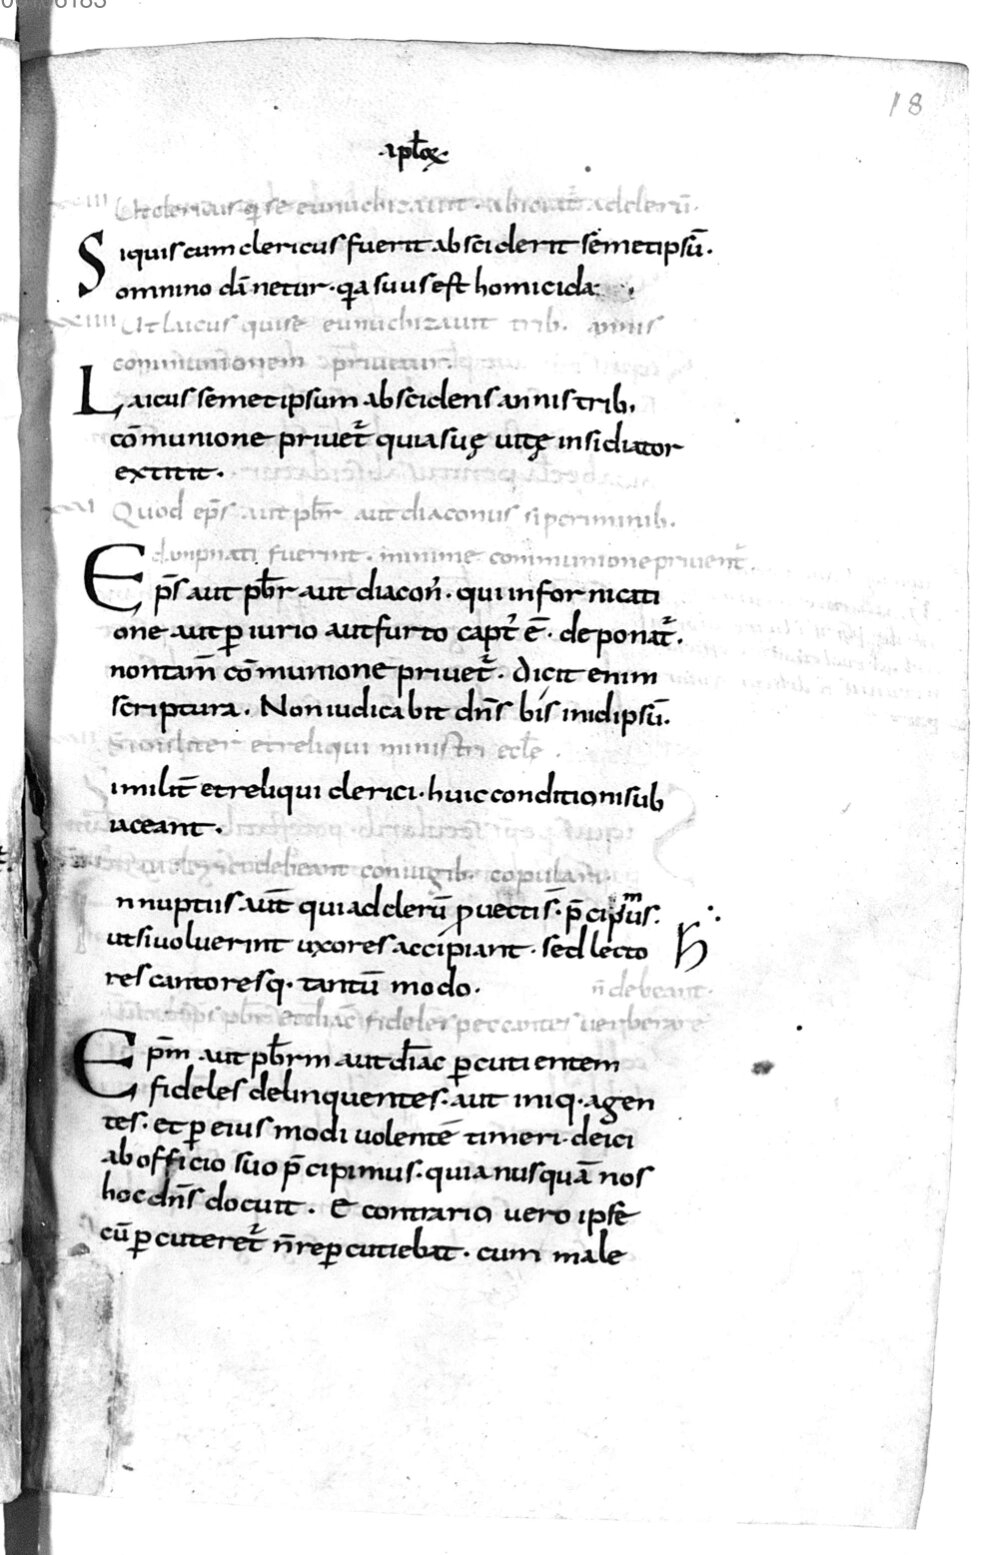 18
·apłoꝝ·
xxiii Ut clericus q̣ se eunuchizauit · abiciat᷑ a clerū·
Siquis cum clericus fuerit absciderit semetipsū·
omnino dānetur · qa suus est homicida·
xxiiii Ut laicus qui se eunuchizauit trib· annis
communionem priuetur
Laicus semetipsum abscidens annis trib·
cōmunione priuet᷑ quia suę uitę insidiator
extitit·
Quod ep̄s aut pb̄r aut diaconus si pro criminib·
dampnati fuerint · minime communione priuent᷑·
Ep̄s aut pb̄r aut diacon̄· qui in fornicati
one aut ꝑiurio aut furto capt᷑ ē· deponat᷑·
non tam̄ cōmunione priuet᷑· dicit enim
scriptura · Non iudicabit dn̄s bis in idipsū·
Similiter et reliqui ministri eccłe ·
imilit̄ et reliqui clerici · huic conditioni sub
iaceant·
debeant coniugib· copulari
nnuptiis aut̄ qui ad clerū ꝓuecti s̄· p̄cipimus·
ut si uoluerint uxores accipiant · sed lecto
res cantoresq· tantū modo·
n̄ debeant·
ep̄s pb̄r et diac̄ fideles peccantes uerberare
Ep̄m aut pb̄rm aut diac̄ ꝑcutientem
fideles delinquentes· aut iniq· agen
tes· et ꝑ eius modi uolentē timeri· deici
ab officio suo p̄cipimus· quia nusquā nos
hoc dn̄s docuit · E contrario uero ipse
cū ꝑcuteret᷑ n̄ reꝑcutiebat · cum male